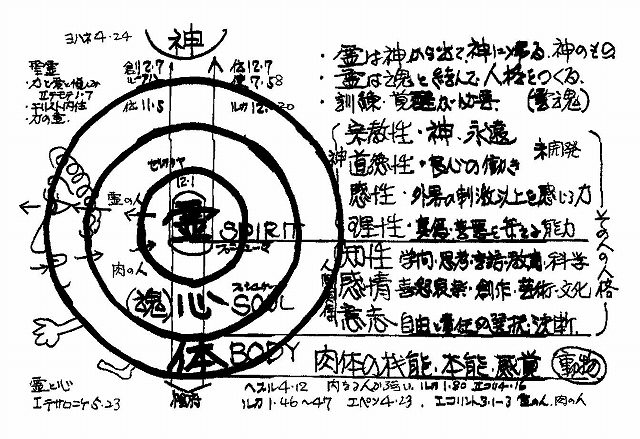 ヨハネ4・24
神
聖霊
・力と愛と慎しみ
Ⅱテモテ1・7
・キリスト内住
・力の霊
創2.7
伝12.7
7.58
伝11.5
ルカ12.20
ゼカリヤ
12.1
霊の人
霊
SPIRIT
プニューマ
肉の人
(魂)
心
SOUL
体
BODY
霊と心
Ⅰテサロニケ5.23
・霊は神から出て、神に帰る. 神のもの.
・霊は魂と結んで人格をつくる.
・訓練・覚醒が必要. (霊魂)
宗教性・神、永遠
神
道徳性・良心の働き
未開発
感性・外界の刺激以上を感じる力
理性・真偽・善悪を弁える能力
知性 学問・思考・言語・教育・科学
感情 喜怒哀楽・創作・芸術・文化
意志 自由と責任の選択、決断.
人間関係
その人の人格
肉体の機能・本能・感覚
動物
ヘブル4・12 内なる人が強い. ルカ1・80 Ⅱコリ4・16
ルカ1・46〜47 エペソ4・23. Ⅰコリント3・1-3 霊の人. 肉の人